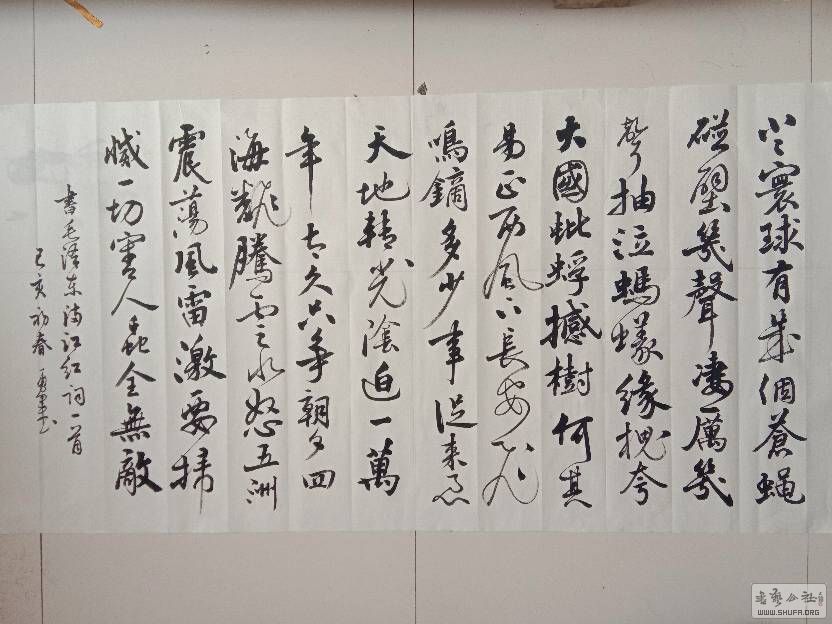 小〻寰球有幾個蒼蠅
碰壁幾聲淒厲幾
聲抽泣螞蟻緣槐夸
大國蚍蜉撼樹何其
易正西風下長安飛
鳴鏑多少事從來急
天地轉光陰迫一萬
年太久只爭朝夕四
海翻騰雲水怒五洲
震蕩風雷激要掃
滅一切害人虫全無敵
書毛澤东满江红词一首
己亥初春
WWW.SHUFA.ORG